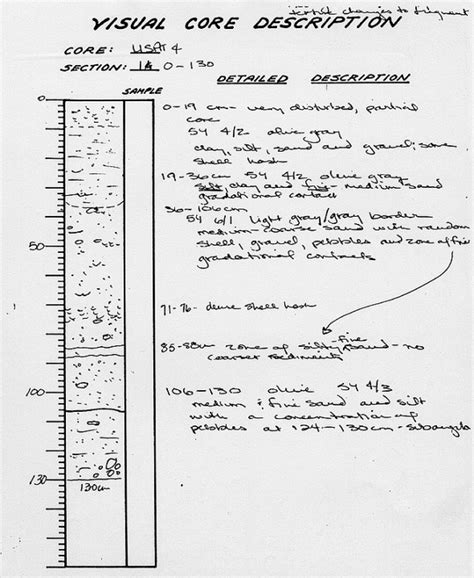 changes to
VISUAL CORE DESCRIPTION
CORE: USAT 4
SECTION: 1A 0-130
SAMPLE
DETAILED DESCRIPTION
0
50
100
130
130cm
0-19 cm- very disturbed, partial
core
5Y 4/2 olive gray
clay, silt, sand and gravel, some
shell hash
19-36cm 5Y 4/2 olive gray
silt, clay and fine-medium sand
gradational contact
36-106cm
5Y 6/1 light gray/gray border
medium-coarse sand with random
shell, gravel, pebbles and zone of fine
gradational contacts
71-76- dense shell hash
85-88cm zone of silty-fine sand-no
coarser sediments
106-130 olive 5Y 4/3
medium & fine sand and silt
with a concentration of
pebbles at 124-130cm-